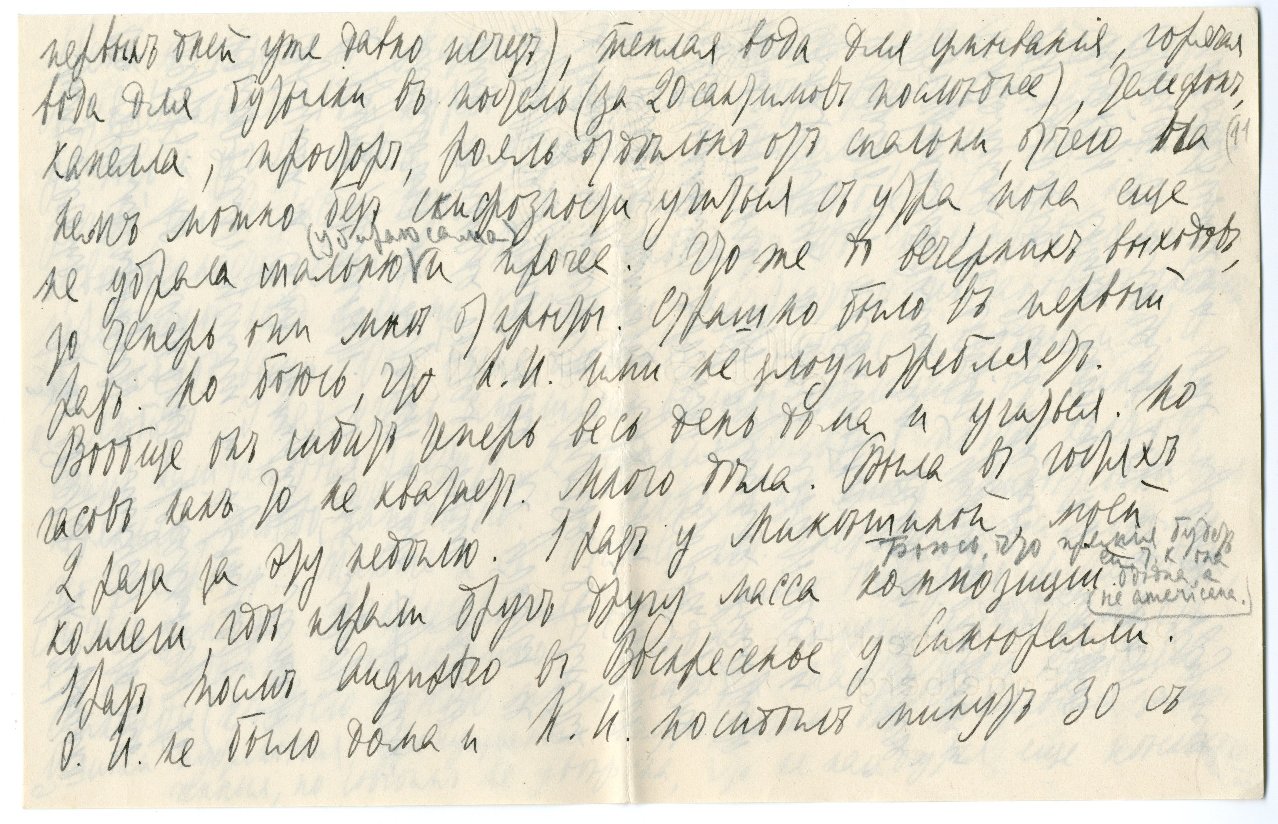 первыхъ дней уже давно исчезъ), теплая вода для умыванія, горячая
вода для бутылки въ постель (за 20 сантимовъ послѣднее), телефонъ,
капелла, просторъ, рояль отдѣльно отъ спальни, отчего
можно безъ учиться съ утра пока еще
(убираю сама)
не убрала спальню и прочее. Что же до вечернихъ выходовъ,
то теперь они мнѣ открыты. Страшно было въ первый
разъ. Но боюсь, что И. И. ими не злоупотребляетъ.
Вообще онъ сидитъ теперь весь день дома и учиться. Но
часовъ какъ то не хватает. Много дѣла. Была в гостях
2 раза за эту недѣлю. 1 разъ у моей
Боюсь, что премия будет
т. к она
бѣдна, а
не americana.)
коллеги, гдѣ играли другъ другу масса композиции.
1 разъ послѣ Augusteo въ Воскресенье у Синьорелли.
О. И. не было дома и И. И. посидѣлъ минутъ 30 съ